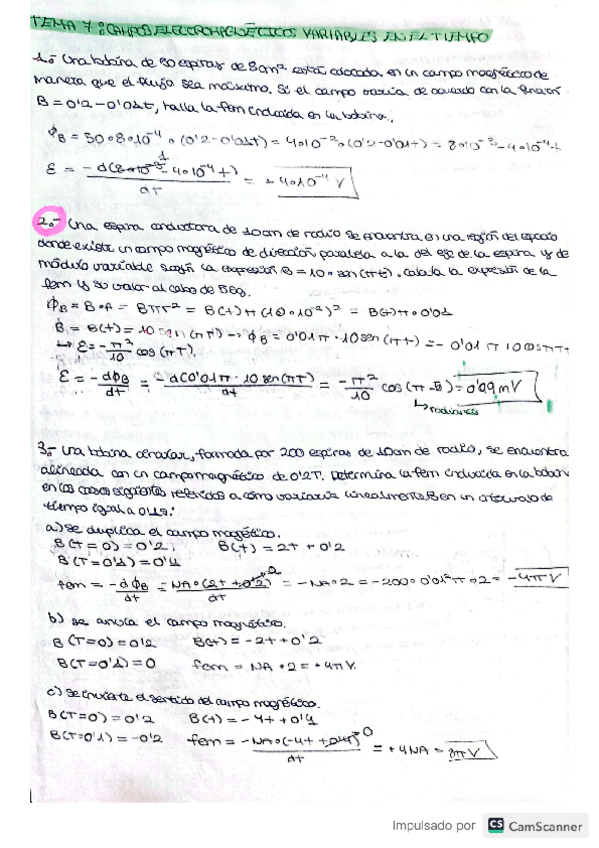 TEMA 7: CAMPOS ELECTROMAGNÉTICOS VARIABLES EN EL TIEMPO
1.- Una bobina de 50 espiras de 8cm² está colocada en un campo magnético de
manera que el flujo sea máximo. Si el campo varía de acuerdo con la función
B = 0'2 - 0'01t, halla la fem inducida en la bobina.
ϕB = 50·8·10⁻⁴·(0'2-0'01t) = 4·10⁻²·(0'2-0'01t) = 8·10⁻³-4·10⁻⁴t
ε = -d(8·10⁻³-4·10⁻⁴t)/dt = +4·10⁻⁴ V
2.- Una espira conductora de 10cm de radio se encuentra en una región del espacio
donde existe un campo magnético de dirección paralela a la del eje de la espira y de
módulo variable según la expresión B = 10·sen(πt). Calcula la expresión de la
fem y su valor al cabo de 5 sg.
ϕB = B·A = Bπr² = B(t)π(10·10⁻²)² = B(t)π·0'01
B = B(t) = 10 sen(πT) → ϕB = 0'01π·10sen(πt) = -0'01π10cosπt
↳ ε = -π²/10 cos(πT).
ε = -dϕB/dt = -d(0'01π·10 sen(πT))/dt = -π²/10 cos(π·5) = 0'99 mV
↳ radianes
3.- Una bobina circular, formada por 200 espiras de 10cm de radio, se encuentra
alineada con un campo magnético de 0'2T. Determina la fem inducida en la bobina
en los casos siguientes referidos a cómo variaría linealmente B en un intervalo de
tiempo igual a 0'1s:
a) Se duplica el campo magnético.
B(T=0) = 0'2 B(t) = 2t + 0'2
B(T=0'1) = 0'4
fem = -dϕB/dt = NA·(2t+0'2)/dt = -NA·2 = -200·0'01²π·2 = -4π V
b) Se anula el campo magnético.
B(T=0) = 0'2 B(t) = -2t + 0'2
B(T=0'1) = 0 fem = NA·2 = +4π V.
c) Se invierte el sentido del campo magnético.
B(T=0) = 0'2 B(t) = -4t + 0'4
B(T=0'1) = -0'2 fem = -NA·(-4t+0'4)/dt = +4NA = 8π V
Impulsado por CS CamScanner